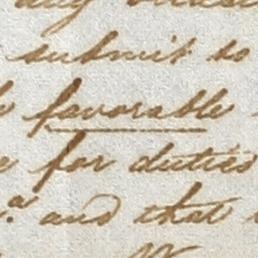 submit to
favorable
for duties
and that